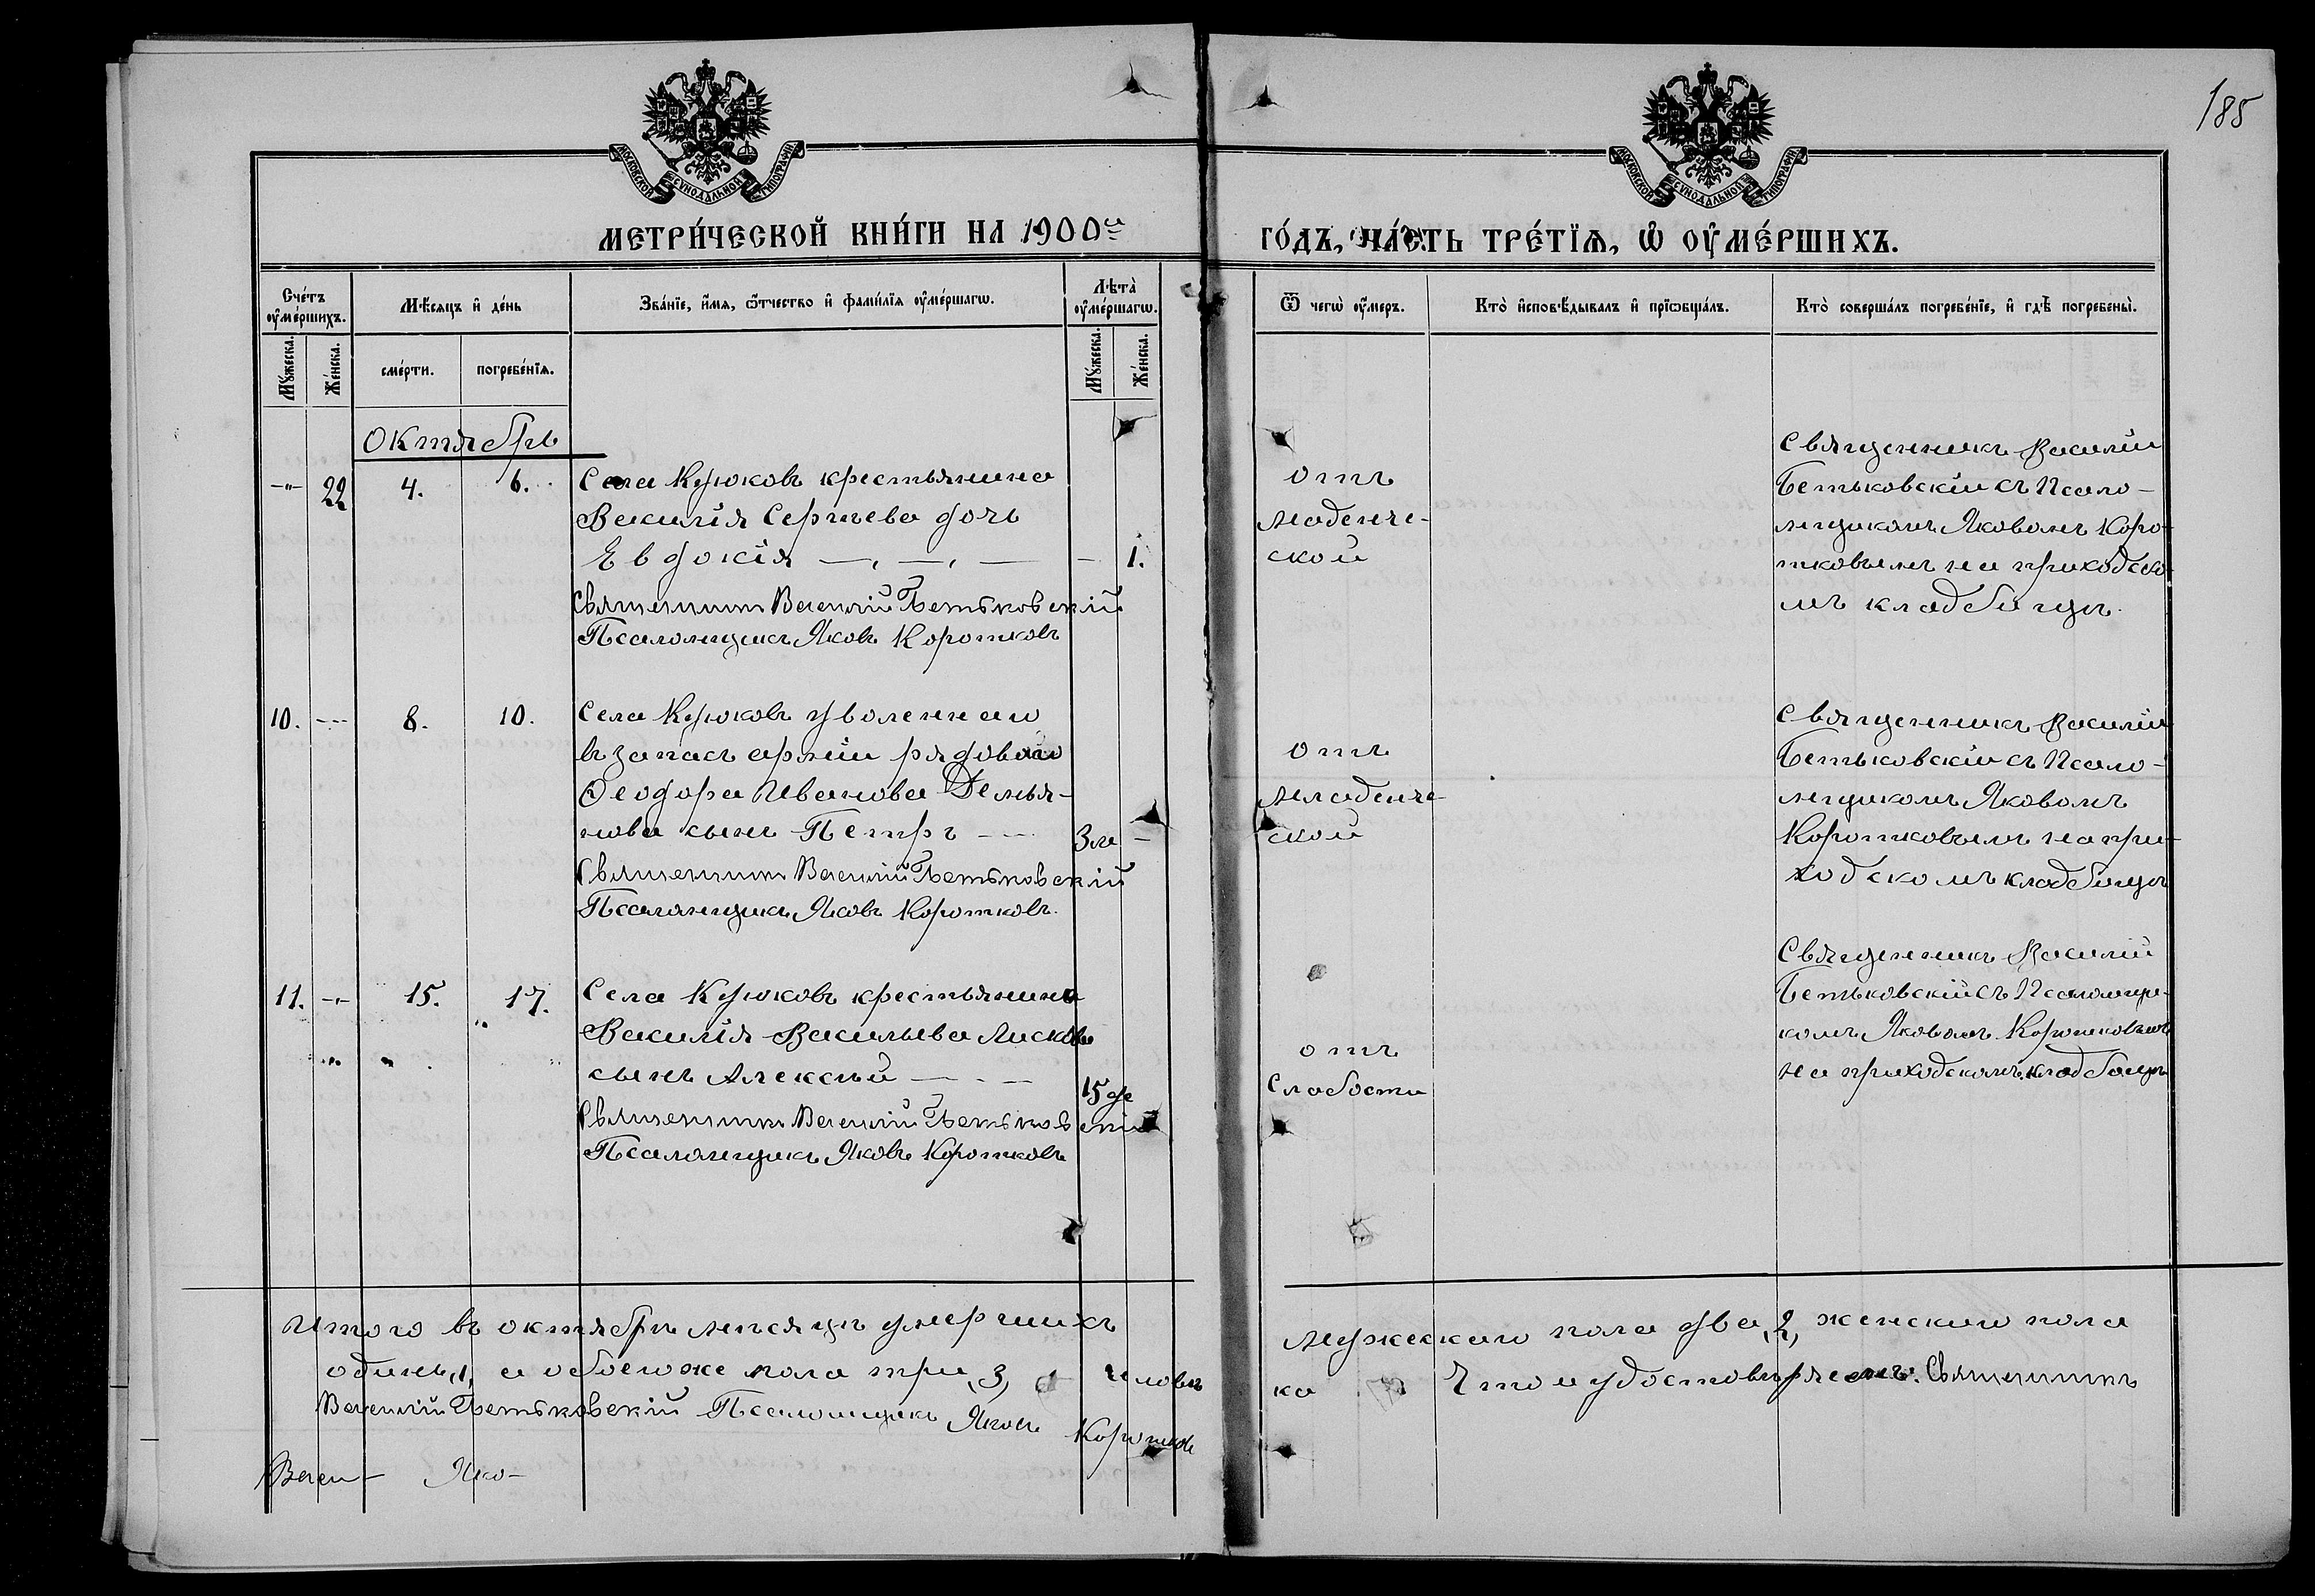 185
МОСКОВСКОЙ СѴНОДАЛЬНОЙ ТИПОГРАФІИ
МОСКОВСКОЙ СѴНОДАЛЬНОЙ ТИПОГРАФІИ
МЕТРИ́ЧЕСКОЙ КНИ́ГИ НА 1900й
ГО́ДЪ, ЧА́СТЬ ТРЕ́ТЇѦ, Ѡ҆ ОУ҆МЕ́РШИХЪ.
Сче́тъ оу҆ме́ршихъ.
Мѣ́сяцъ и҆ де́нь
Зва́нїе, и҆́мѧ, ѻ҆́тчество и҆ фами́лїѧ оу҆ме́ршагѡ.
Лѣта̀ оу҆ме́ршагѡ.
Ѿ чегѡ̀ оу҆́меръ.
Кто̀ и҆сповѣ́дывалъ и҆ прїѡбща́лъ.
Кто̀ соверша́лъ погребе́нїе, и҆ гдѣ̀ погребены̀.
Мꙋ́жеска.
Же́нска.
сме́рти.
погребе́нїѧ.
Мꙋ́жеска.
Же́нска.
Октябрь
-"- 22 4. 6. Села Крюковъ крестьянина
Василія Сергѣева дочь
Евдокія — — — - 1.
Священникъ Василій Бетьковскій
Псаломщикъ Яковъ Коротковъ
отъ
младенче-
ской
Священникъ Василій
Бетьковскій съ Псало-
мщикомъ Яковомъ Коро-
тковымъ на приходско-
мъ кладбищѣ.
10. --- 8. 10. Села Крюковъ уволеннаго
въ запасъ арміи рядоваго
Ѳеодора Иванова Демья-
нова сынъ Петръ - - 3 м -
Священникъ Василій Бетьковскій
Псаломщикъ Яковъ Коротковъ.
отъ
младенче-
ской
Священникъ Василій
Бетьковскій съ Псало-
мщикомъ Яковомъ
Коротковымъ на при-
ходскомъ кладбищѣ
11. -"- 15. 17. Села Крюковъ крестьянина
Василія Васильева Лискова
сынъ Алексѣй — - — 15 де
Священникъ Василій Бетьковскій
Псаломщикъ Яковъ Коротковъ
отъ
Слабости
Священникъ Василій
Бетьковскій съ Псаломщи-
комъ Яковомъ Коротковымъ
на приходскомъ кладбищѣ
Итого въ октябрѣ мѣсяцѣ умершихъ мужескаго пола два, 2, женскаго пола
одинъ, 1, а обоего же пола три, 3, человѣка Что и удостовѣряемъ: Священникъ
Василій Бетьковскій Псаломщикъ Яковъ Коротковъ
Васи- Яко-